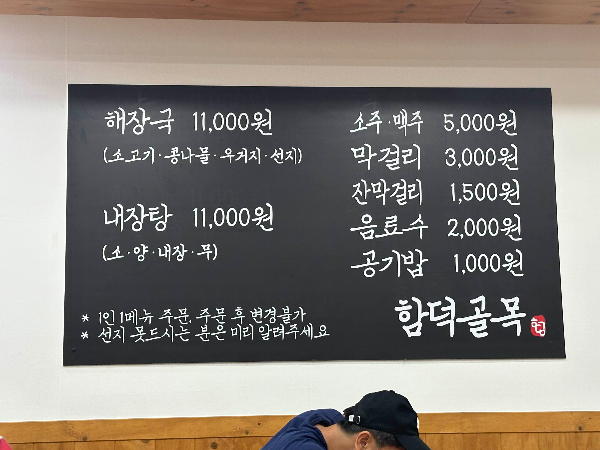 해장국 11,000원
(소고기·콩나물·우거지·선지)
내장탕 11,000원
(소·양·내장·무)
* 1인 1메뉴 주문, 주문 후 변경불가
* 선지 못드시는 분은 미리 알려주세요
소주·맥주 5,000원
막걸리 3,000원
잔막걸리 1,500원
음료수 2,000원
공기밥 1,000원
함덕골목